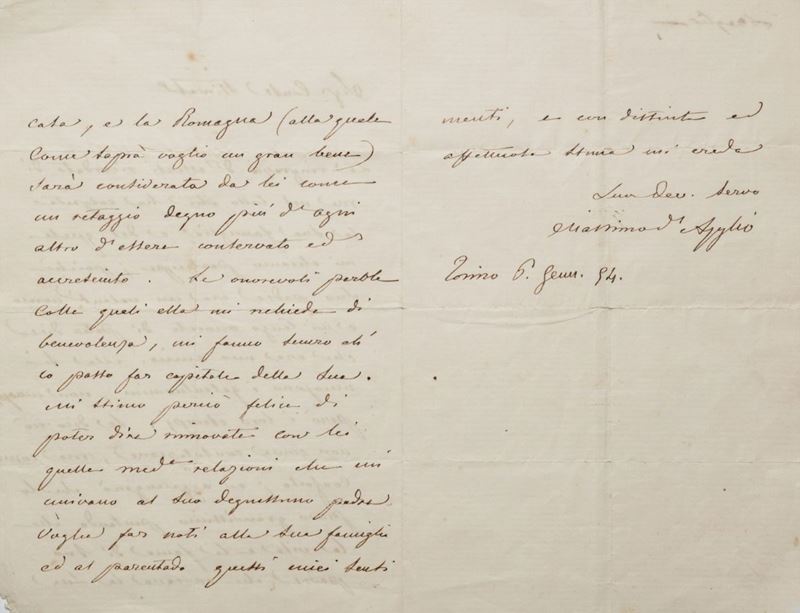 casa, e la Romagna (alla quale
Come saprà voglio un gran bene)
sarà considerata da lei come
un retaggio degno più d'ogni
altro d'essere conservato ed
accresciuto. Le onorevoli parole
colle quali ella mi richiede di
benevolenza, mi fanno sicuro ch'
io posso far capitale della sua.
Mi stimo perciò felice di
poter dire rinnovate con lei
quelle med.e relazioni che mi
univano al suo degnissimo padre
Voglia far noti alla sua famiglia
ed al parentado questi miei senti
menti, e con distinta ed
affettuosa stima mi creda
Suo Dev. servo
Massimo d'Azeglio
Torino 6. Genn. 54.